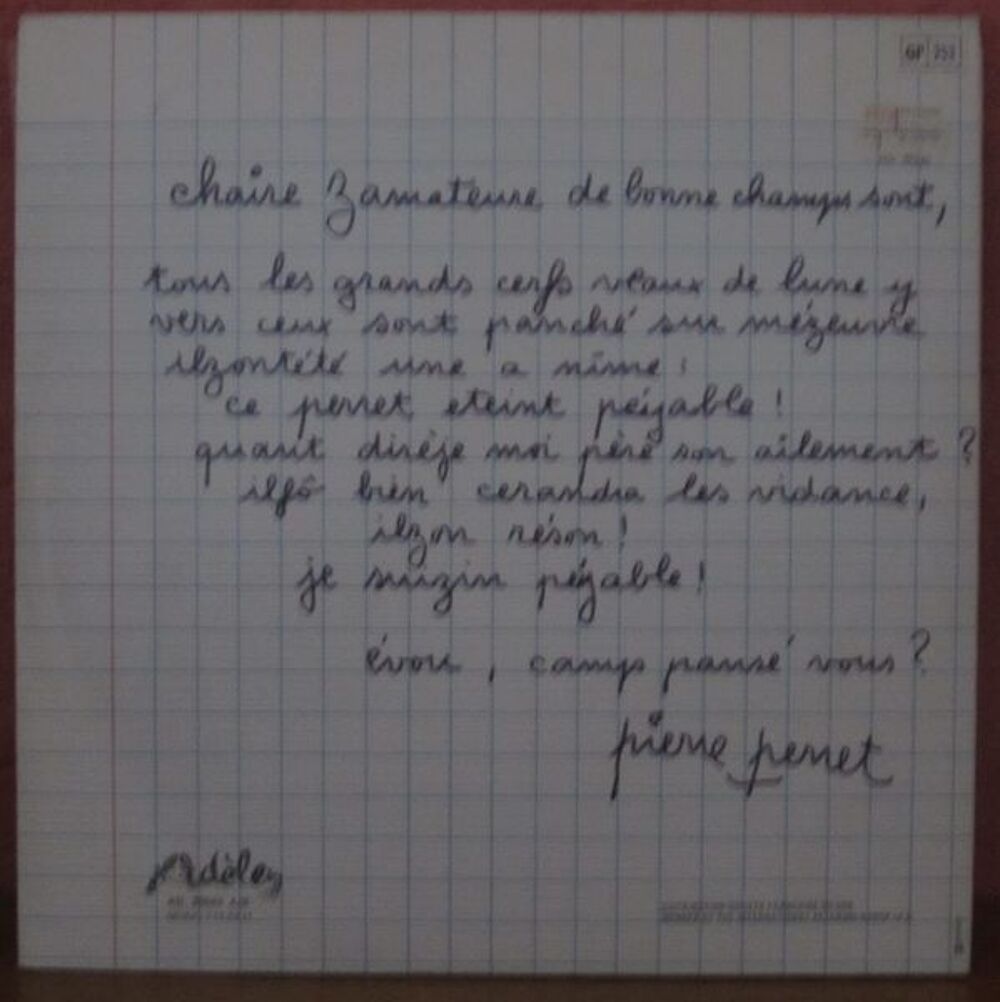 GP 252
chaire Zamateure de bonne champs sont,
tous les grands cerfs veaux de lune y
vers ceux sont panché sur mézeuvre
ilzontété une a nime :
ce perret eteint péyable !
quant diréje moi père son ailement ?
ilfô bien cerandra les vidance,
ilzon réson !
je suizin péyable !
évou, camps pansé vous ?
pierre perret
Adèle